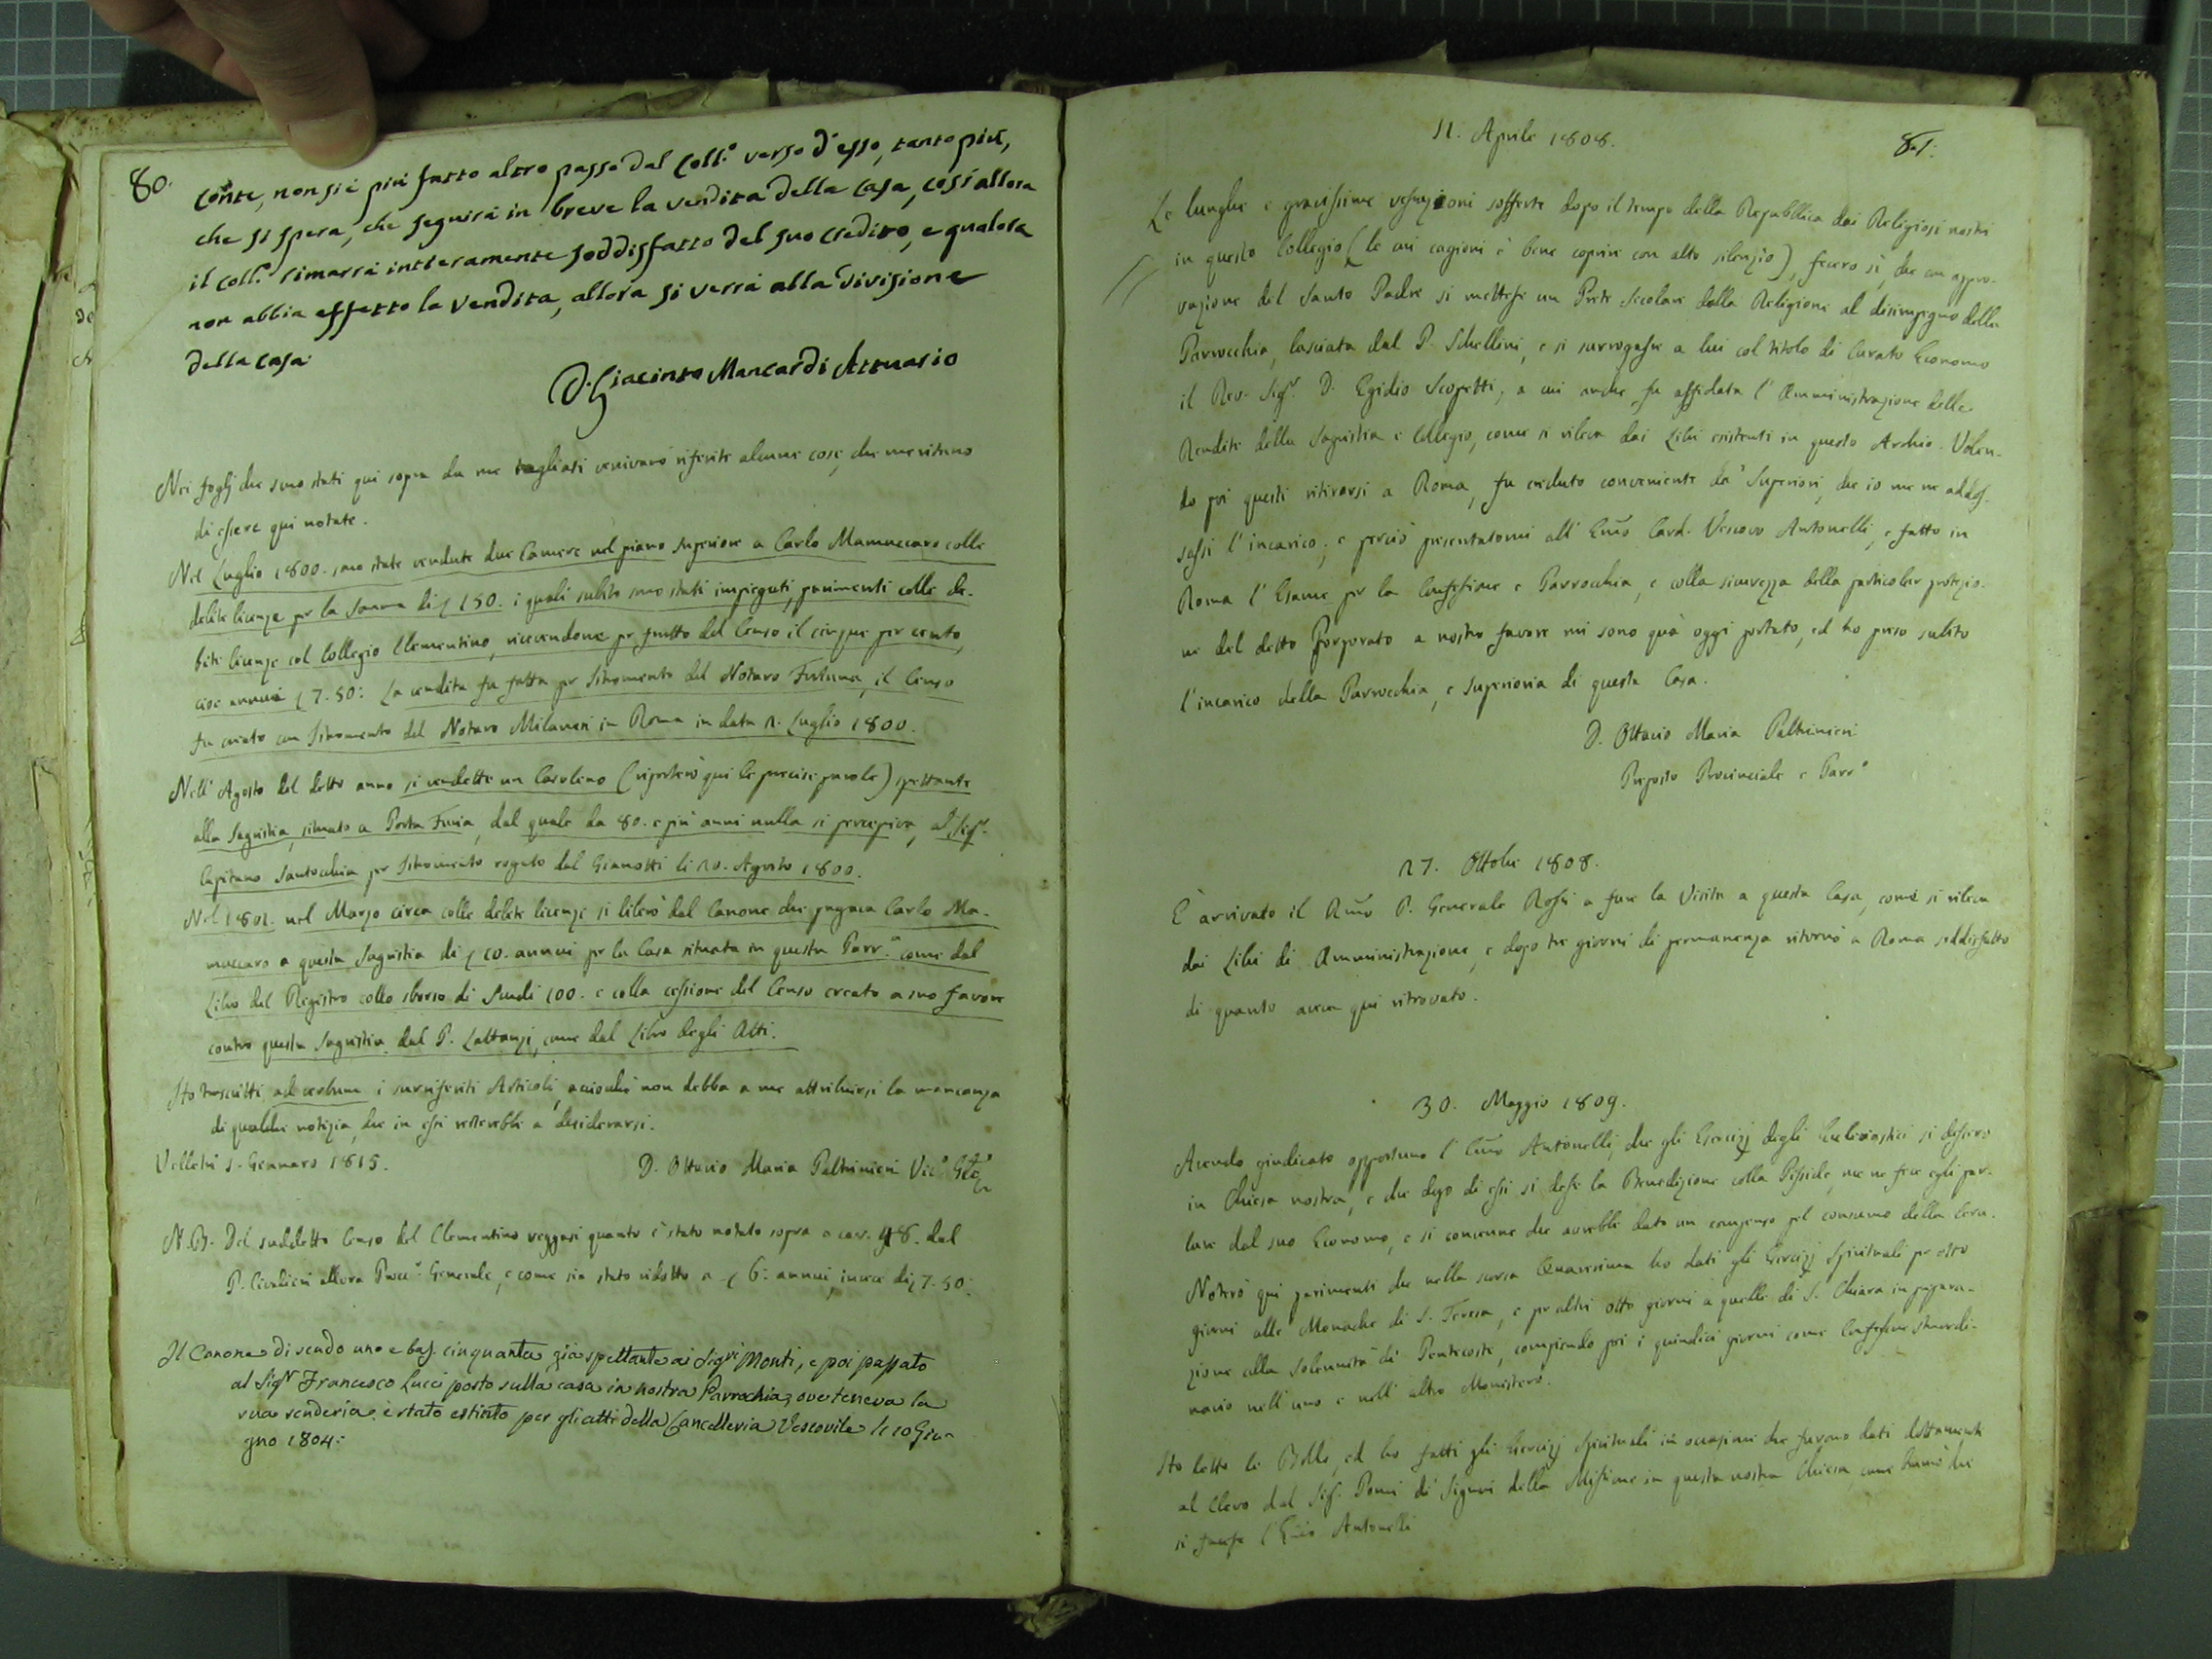 80.
conte, non si è più fatto altro passo dal Coll.o verso d'esso, tanto più,
che si spera, che seguirà in breve la vendita della casa, così allora
il Coll.o rimarrà intieramente soddisfatto del suo credito, e qualora
non abbia effetto la vendita, allora si verrà alla divisione
della casa.
D. Giacinto Mancardi Attuario
Nei foglj che sono stati qui sopra da me tagliati venivano riferite alcune cose, che meritano
di essere qui notate.
Nel Luglio 1800. sono state vendute due Camere nel piano superiore a Carlo Mamuccaro colle
debite licenze per la somma di 150. i quali subito sono stati impiegati, parimenti colle de-
bite licenze col Collegio Clementino, ricevendone per frutto del Censo il cinque per cento,
cioè annui 7.50: La vendita fu fatta per Istromento del Notaro Fortuna, il Censo
fu creato con Istromento del Notaro Milanesi in Roma in data Luglio 1800.
Nell' Agosto del detto anno si vendette un Casaleno (riporterò qui le precise parole) spettante
alla Sagristia, situato a Porta Furia, dal quale da 80. e più anni nulla si percepiva, al Sigr.
Capitano Santocchia per Istromento rogato dal Gianotti li 20. Agosto 1800.
Nel 1801. nel Marzo circa colle debite licenze si liberò dal Canone che pagava Carlo Ma-
muccaro a questa Sagristia di 10. annui per la Casa situata in questa Parr.a come dal
Libro del Registro collo sborso di Scudi 100. e colla cessione del Censo creato a suo favore
contro questa Sagristia dal P. Lattanzi, come dal Libro degli Atti.
Ho trascritti ad verbum i surriferiti Articoli, acciocchè non debba a me attribuirsi la mancanza
di qualche notizia, che in essi resterebbe a desiderarsi.
Velletri 5. Gennaro 1815. D. Ottavio Maria Paltrinieri Vic.o
N.B. Del suddetto Censo del Clementino veggasi quanto è stato notato sopra a car. 48. dal
P. Civalieri allora Proc.r Generale, e come sia stato ridotto a 6: annui, invece di 7.50:
Il Canone di scudo uno e baj. cinquanta già spettante ai Sigri Monti, e poi passato
al Sigr Francesco Lucci posto sulla casa in nostra Parrochia, ove teneva la
sua renderia, è stato estinto per gli atti della Cancelleria Vescovile li 10 Giu-
gno 1804:
Aprile 1808.
81.
Le lunghe e gravissime vessazioni sofferte dopo il tempo della Repubblica dai Religiosi nostri
in questo Collegio (le cui cagioni è bene coprire con alto silenzio), fecero sì, che con appro-
vazione del Santo Padre si mettesse un Prete Secolare dalla Religione al disimpegno della
Parrocchia, lasciata dal P. Schellini, e si surrogasse a lui col titolo di Curato Economo
il Rev. Sigr. D. Egidio Scopetti, a cui anche fu affidata l' Amministrazione delle
Rendite della Sagristia e Collegio, come si rileva dai Libri esistenti in questo Archio. Volen-
do poi questi ritirarsi a Roma, fu creduto conveniente da' Superiori, che io me ne addos-
sassi l' incarico; e perciò presentatomi all' Emo Card. Vescovo Antonelli, e fatto in
Roma l' Esame per la Confessione e Parrocchia, e colla sicurezza della particolar protezio-
ne del detto Porporato a nostro favore mi sono quà oggi portato, ed ho preso subito
l' incarico della Parrocchia, e Superioria di questa Casa.
D. Ottavio Maria Paltrinieri
Preposto Provinciale e Parr.o
27. Ottobre 1808.
È arrivato il Rmo P. Generale Rossi a fare la Visita a questa Casa, come si rileva
dai Libri di Amministrazione, e dopo tre giorni di permanenza ritornò a Roma soddisfatto
di quanto aveva qui ritrovato.
30. Maggio 1809.
Avendo giudicato opportuno l' Emo Antonelli, che gli Esercizj degli Ecclesiastici si dassero
in Chiesa nostra, e che dopo di essi si desse la Benedizione colla Pisside, me ne fece egli par-
lare dal suo Economo, e si convenne che avrebbe dato un compenso pel consumo della Cera.
Noterò qui parimenti che nella scorsa Quaresima ho dati gli Esercizj Spirituali per otto
giorni alle Monache di S. Teresa, e per altri otto giorni a quelle di S. Chiara in prepara-
zione alla solennità di Pentecoste, compiendo poi i quindici giorni come Confessore straordi-
nario nell' uno e nell' altro Monistero.
Ho letto le Bolle, ed ho fatti gli Esercizj Spirituali in occasione che furono dati dottamente
al Clero dal Sigr. Pomi de' Signori della Missione in questa nostra Chiesa come bramò che
si facesse l' Emo Antonelli